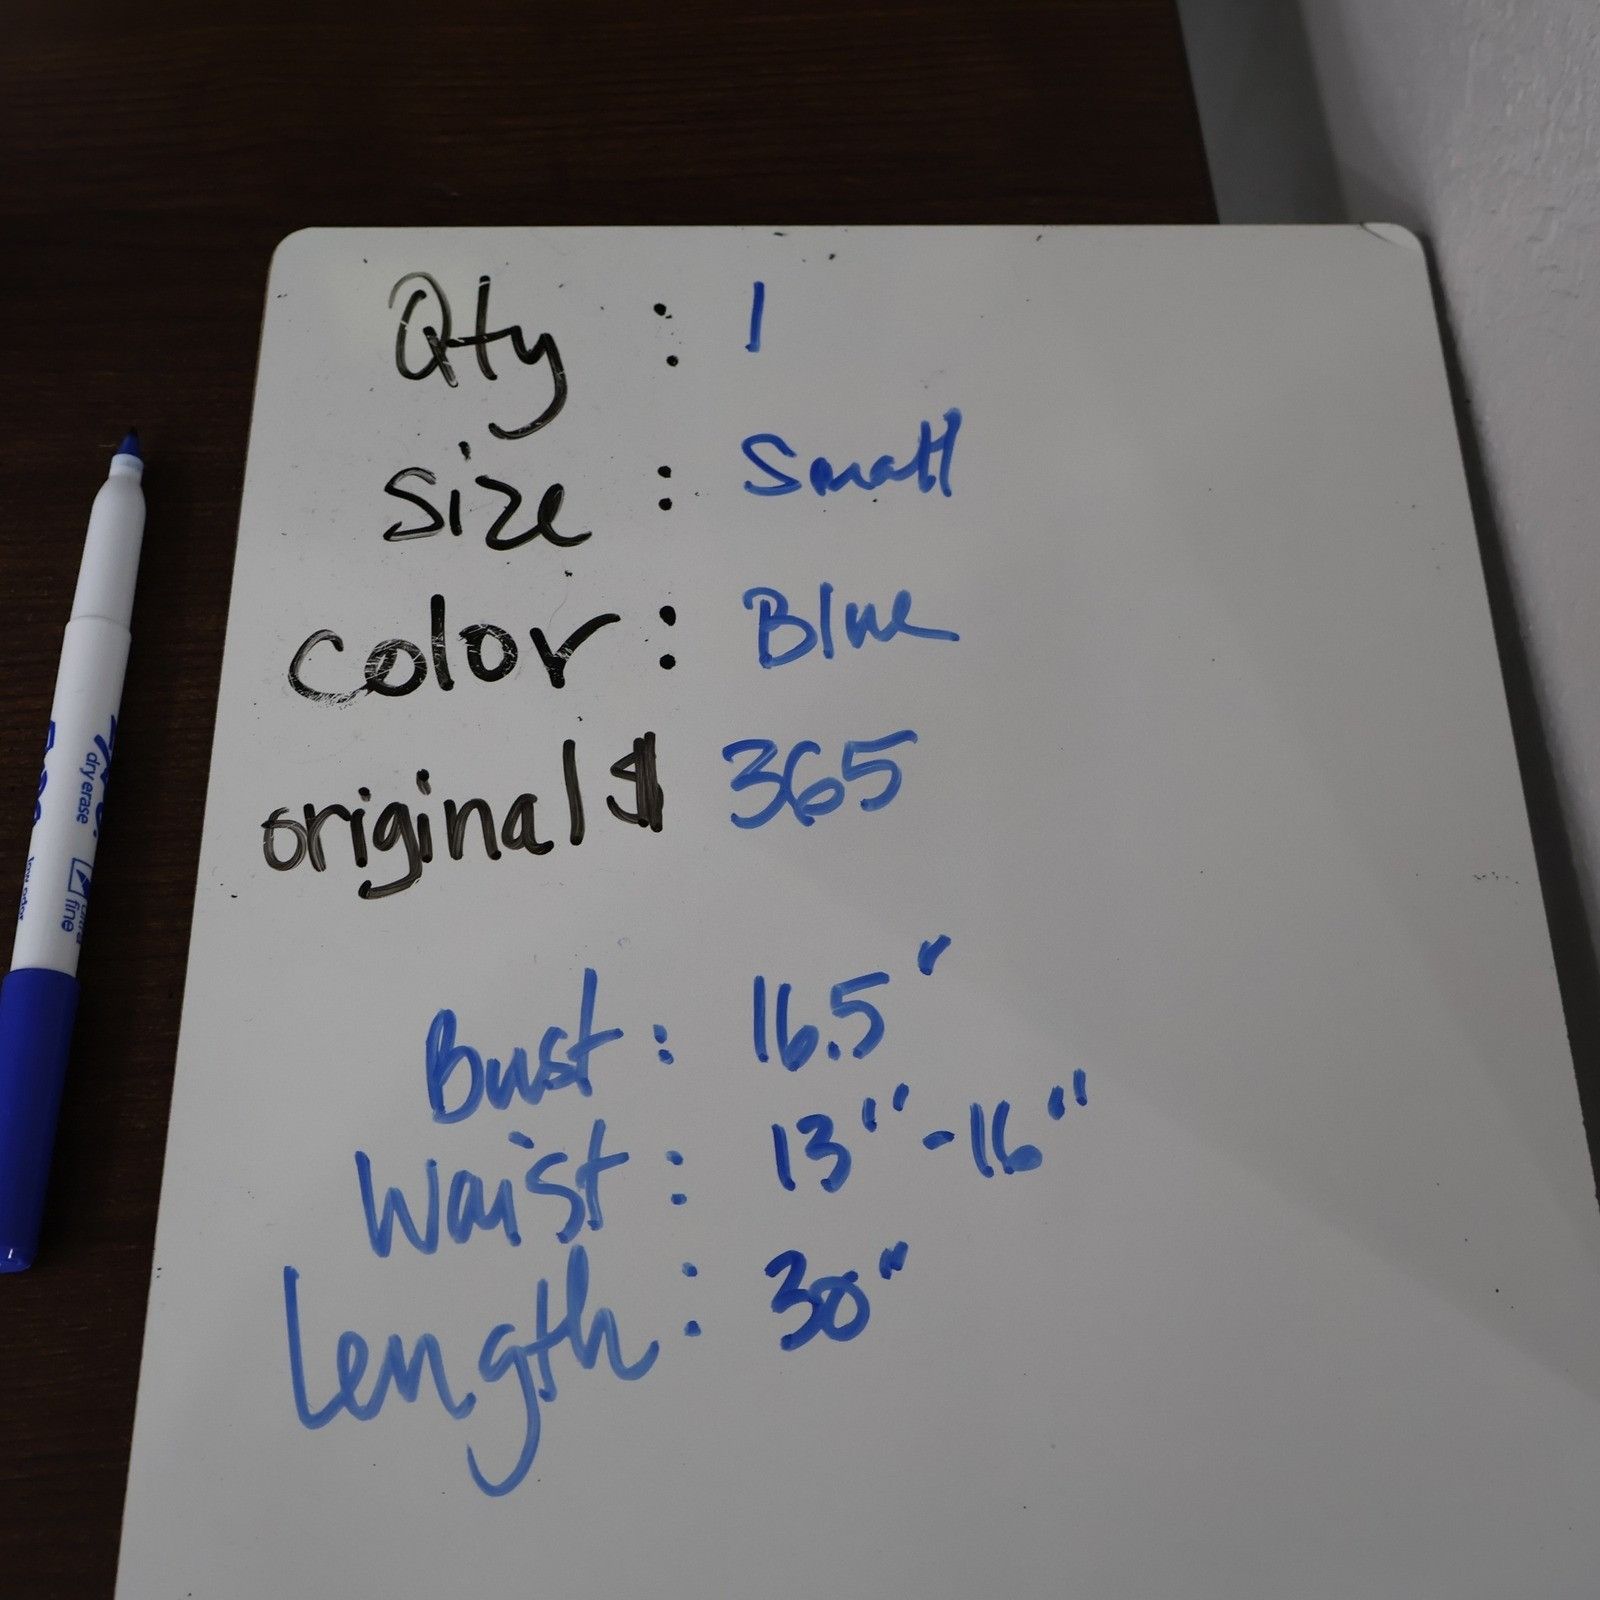 Qty : 1
Size : Small
Color : Blue
original $ 365
Bust : 16.5"
Waist : 13" - 16"
Length : 30"
dry erase
low odor
fine